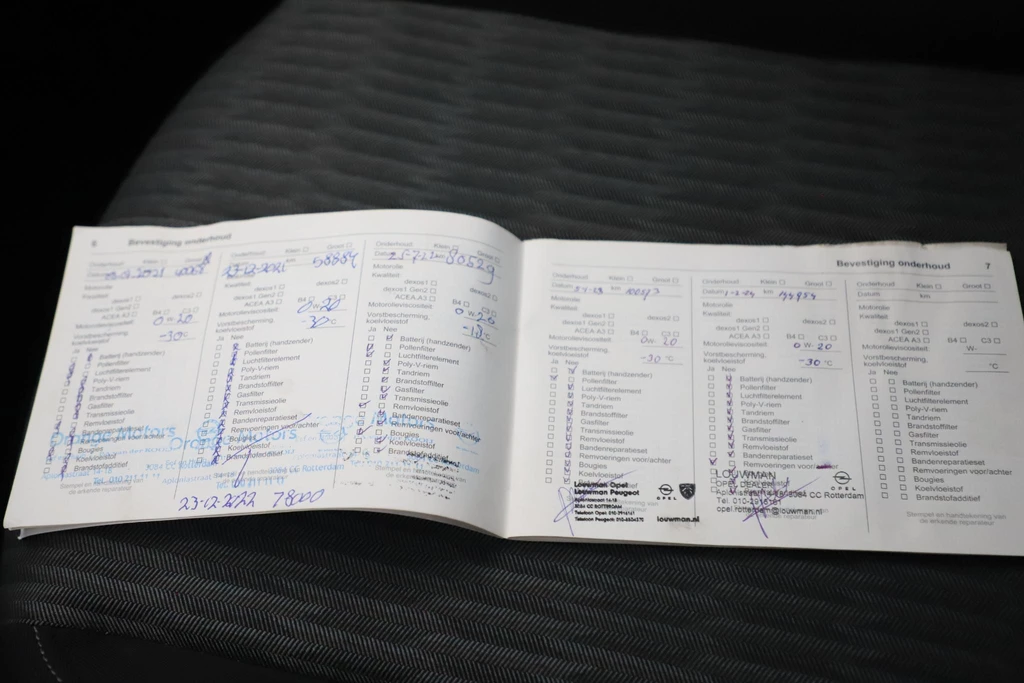 6 Bevestiging onderhoud
Onderhoud: Klein Groot
Datum
Motorolie
Kwaliteit:
dexos1 dexos2
dexos1 Gen2
ACEA A3 B4 C3
Motorolieviscositeit 0 W-20
Vorstbescherming, koelvloeistof -30°C
Ja Nee
Batterij (handzender)
Pollenfilter
Luchtfilterelement
Poly-V-riem
Tandriem
Brandstoffilter
Gasfilter
Transmissieolie
Remvloeistof
Bandenreparatieset
Remvoeringen voor/achter
Bougies
Koelvloeistof
Brandstofadditief
Orange Motors
Onderhoud: Klein Groot
27-12-2021
Motorolie
Kwaliteit:
dexos1 dexos2
dexos1 Gen2
ACEA A3 B4
Motorolieviscositeit: 0 W-20
Vorstbescherming, koelvloeistof -30°C
Ja Nee
Batterij (handzender)
Pollenfilter
Luchtfilterelement
Poly-V-riem
Tandriem
Brandstoffilter
Gasfilter
Transmissieolie
Remvloeistof
Bandenreparatieset
Remvoeringen voor/achter
Bougies
Koelvloeistof
Brandstofadditief
Orange Motors
CC Rotterdam
23-12-2022 78000
Onderhoud: Klein Groot
km 80529
Motorolie
Kwaliteit:
dexos1 dexos2
dexos1 Gen2
ACEA A3 B4 C3
Motorolieviscositeit: 0 W-20
Vorstbescherming, koelvloeistof
Ja Nee
Batterij (handzender)
Pollenfilter
Luchtfilterelement
Poly-V-riem
Tandriem
Brandstoffilter
Gasfilter
Transmissieolie
Remvloeistof
Bandenreparatieset
Remvoeringen voor/achter
Bougies
Koelvloeistof
Brandstofadditief
Bevestiging onderhoud 7
Onderhoud: Klein Groot
Datum km
Motorolie
Kwaliteit:
dexos1 dexos2
dexos1 Gen2
ACEA A3 B4 C3
Motorolieviscositeit: 0W-20
Vorstbescherming, koelvloeistof -30 °C
Ja Nee
Batterij (handzender)
Pollenfilter
Luchtfilterelement
Poly-V-riem
Tandriem
Brandstoffilter
Gasfilter
Transmissieolie
Remvloeistof
Bandenreparatieset
Remvoeringen voor/achter
Bougies
Koelvloeistof
Louwman Opel
Louwman Peugeot
3084 CC ROTTERDAM
OPEL
louwman.nl
Onderhoud: Klein Groot
Datum km
Motorolie
Kwaliteit:
dexos1 dexos2
dexos1 Gen2
ACEA A3 B4 C3
Motorolieviscositeit: 0 W-20
Vorstbescherming, koelvloeistof -30 °C
Ja Nee
Batterij (handzender)
Pollenfilter
Luchtfilterelement
Poly-V-riem
Tandriem
Brandstoffilter
Gasfilter
Transmissieolie
Remvloeistof
Bandenreparatieset
Remvoeringen voor/achter
LOUWMAN
OPEL DEALER
3084 CC Rotterdam
opel.rotterdam@louwman.nl
OPEL
Onderhoud: Klein Groot
Datum km
Motorolie
Kwaliteit:
dexos1 dexos2
dexos1 Gen2
ACEA A3 B4 C3
Motorolieviscositeit: W-
Vorstbescherming, koelvloeistof °C
Ja Nee
Batterij (handzender)
Pollenfilter
Luchtfilterelement
Poly-V-riem
Tandriem
Brandstoffilter
Gasfilter
Transmissieolie
Remvloeistof
Bandenreparatieset
Remvoeringen voor/achter
Bougies
Koelvloeistof
Brandstofadditief
Stempel en handtekening van
de erkende reparateur